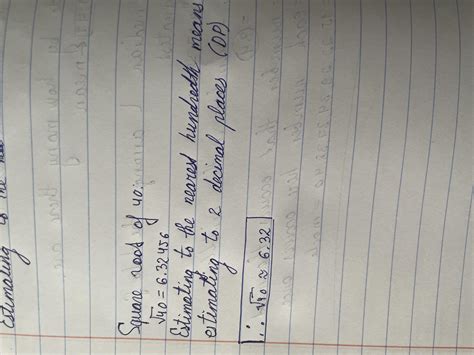 Estimating to the
Square root of 40:
√40 = 6.32456
Estimating to the nearest hundredth means
estimating to 2 decimal places (DP)
∴ √40 ≈ 6.32